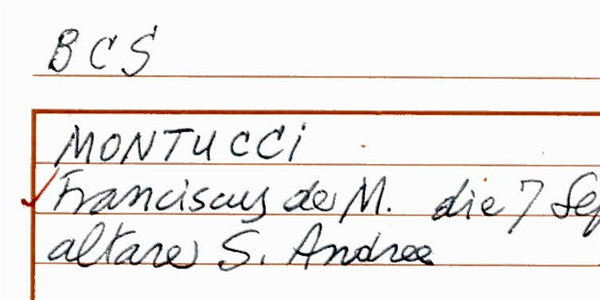 BCS
MONTUCCI
Franciscus de M. die 7 Sep
altare S. Andree